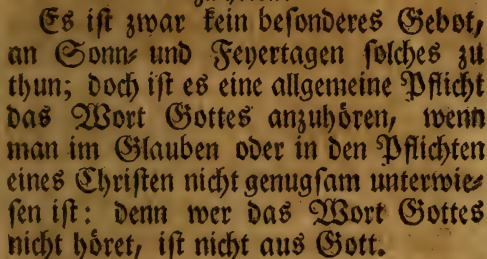 Es ist zwar kein besonderes Gebot,
an Sonn- und Feyertagen solches zu
thun; doch ist es eine allgemeine Pflicht
das Wort Gottes anzuhören, wenn
man im Glauben oder in den Pflichten
eines Christen nicht genugsam unterwie-
sen ist: denn wer das Wort Gottes
nicht höret, ist nicht aus Gott.